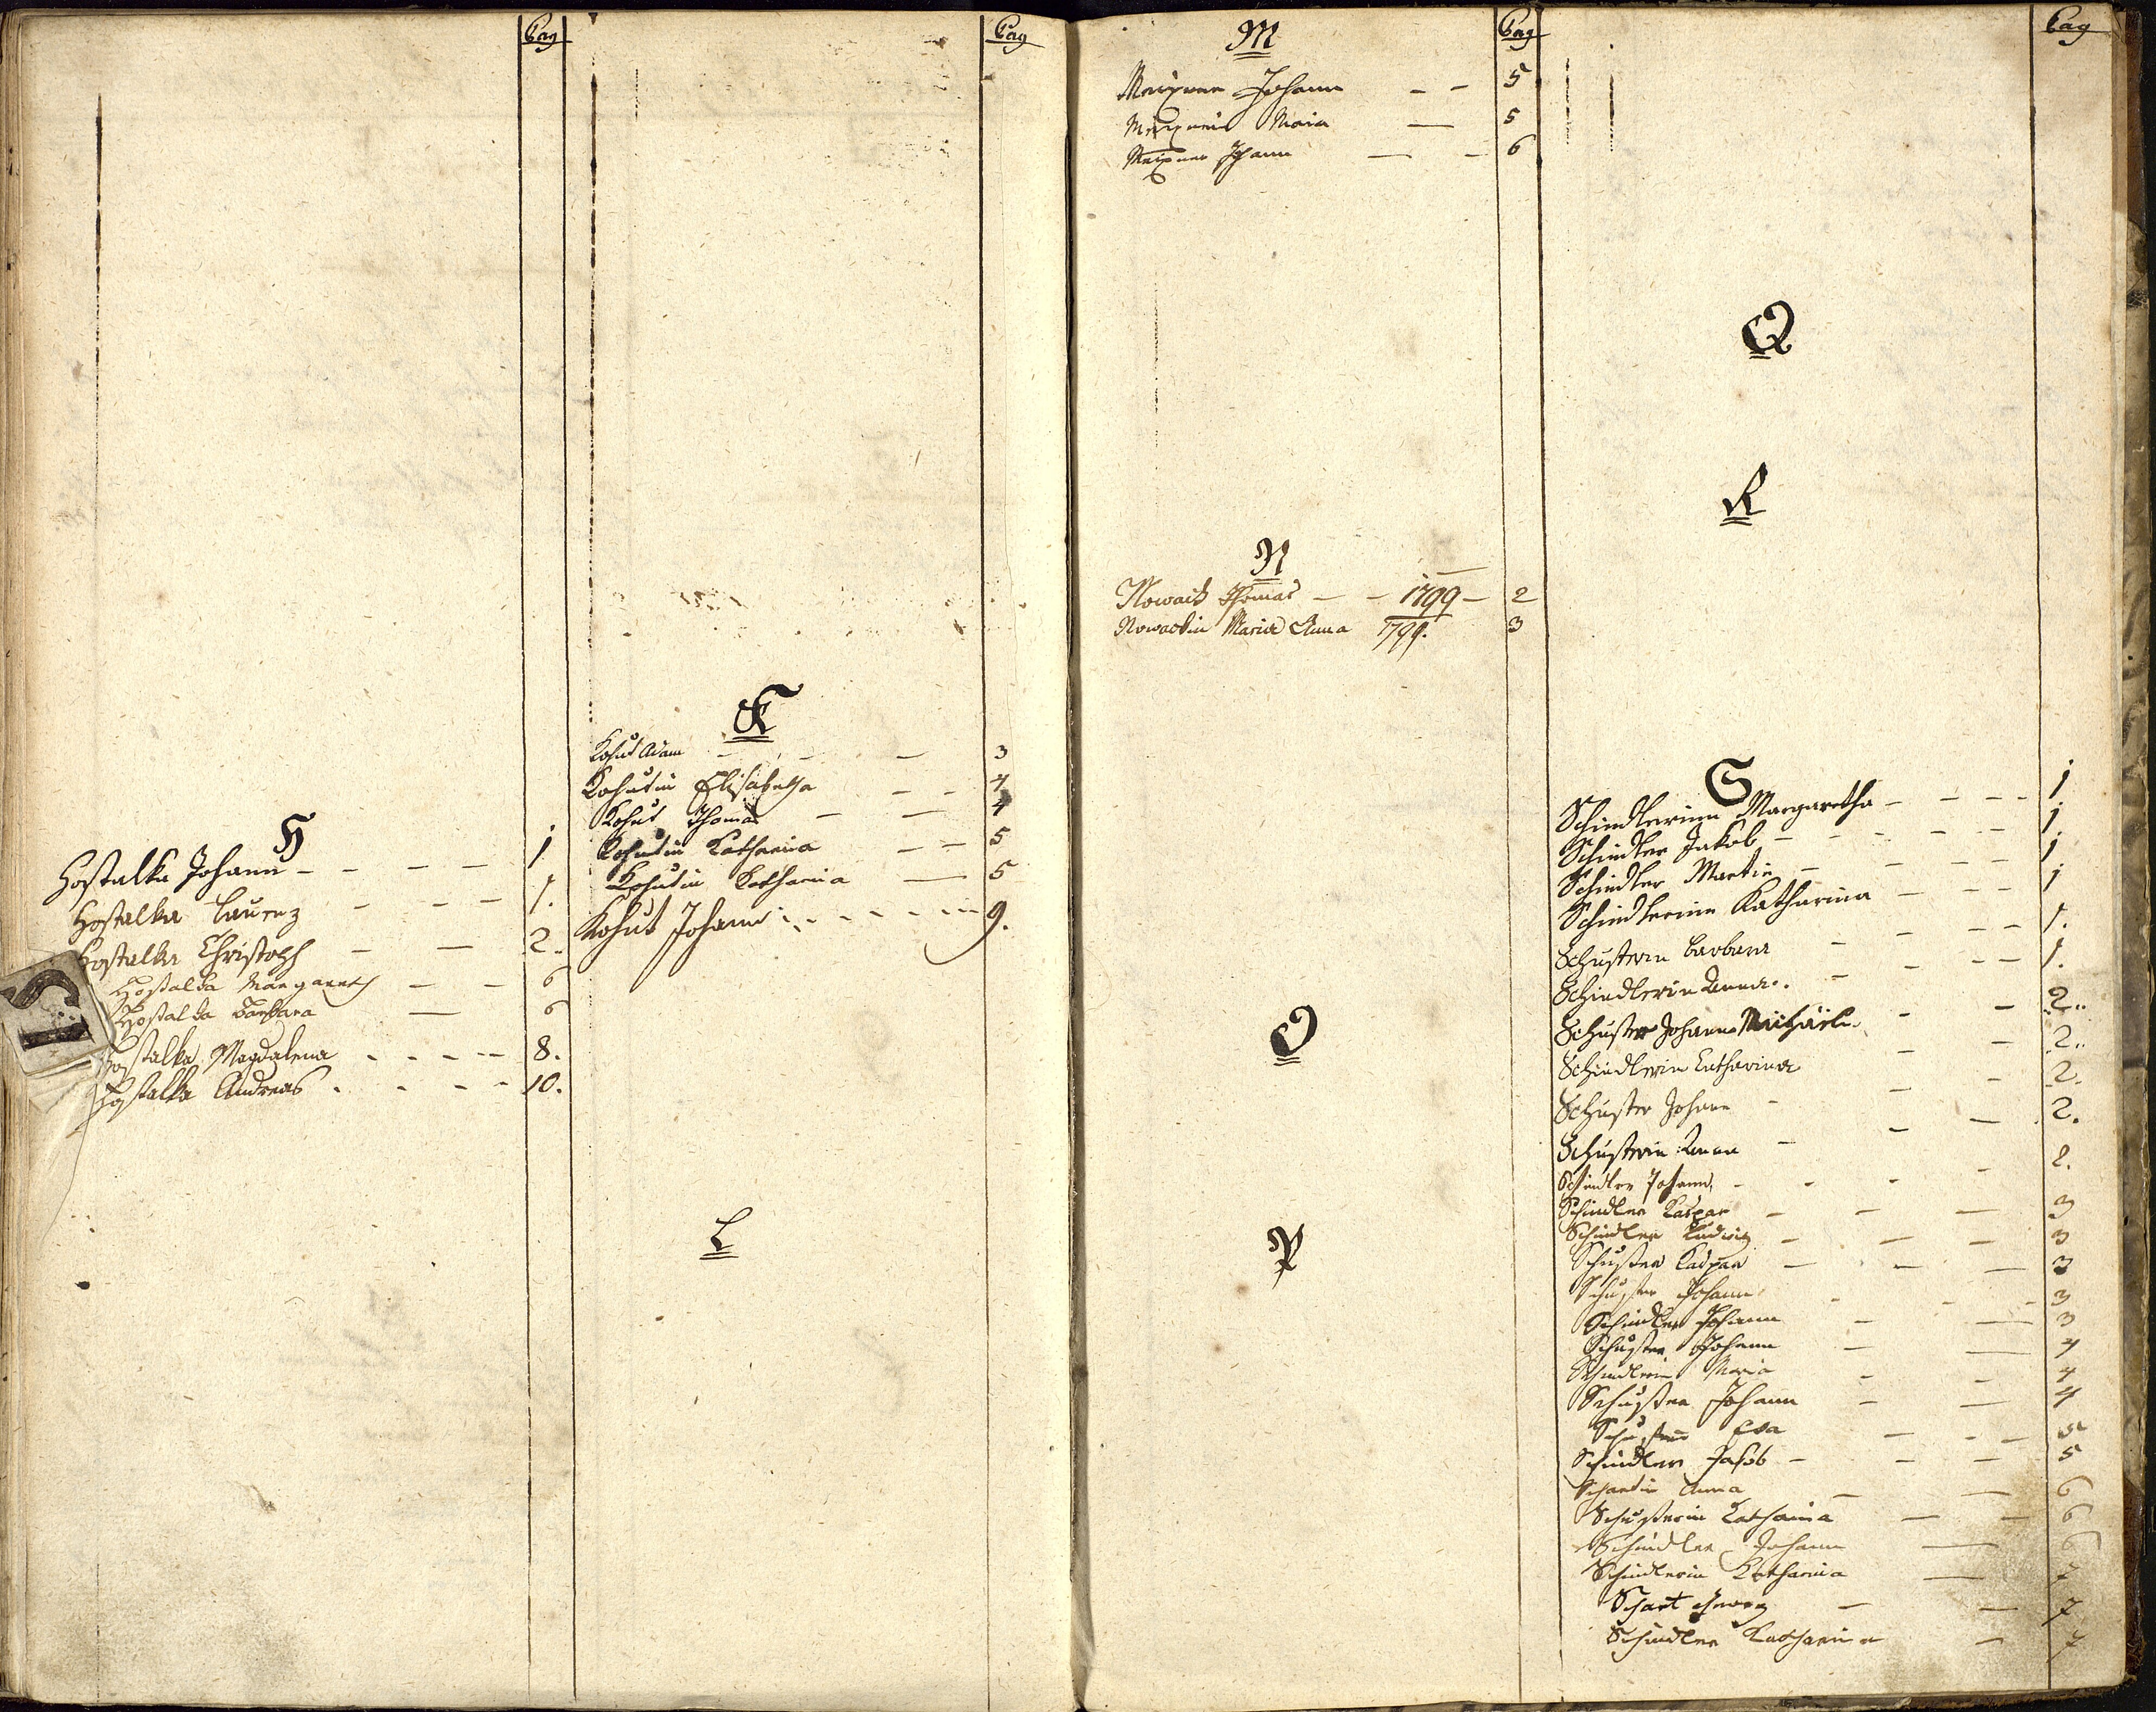 Pag
H
Hostalka Johann - - - - 1
Hostalka Laurenz - - - 1.
Hostalka Christoph - - 2.
Hostalka Margareth - - 6
Hostalka Barbara - 6
Hostalka Magdalena - - - - 8.
Hostalka Andreas - - - - 10.
Pag
K
Kohut Adam - - - 3
Kohutin Elisabetha - - 4
Kohut Thomas - - 4
Kohutin Katharina - - 5
Kohutin Katharina - 5
Kohut Johann - - - - - 9.
L
M
Pag
Meixner Johann - - 5
Maria - 5
Meixner Johann - - 6
N
Nowack Thomas - - 1799 - 2
Nowackin Maria Anna 1799. 3
O
P
Pag
Q
R
S
Schindlerinn Margaretha - - - - 1
Schindler Jakob - - - - - 1.
Schindler Martin - - - - 1.
Schindlerinn Katharina - - - 1
Schusterin Barbara - - - - 1.
Schindlerin Anna. - - - - 1.
Schuster Johann Michäel. - - 2..
Schindlerin Catharina - - 2..
Schuster Johann - - - 2.
Schusterin Anna - - - 2.
Schindler Johann, - - - - 2.
Schindler Kaspar - - - 3
Schindler Ludwig - - - 3
Schuster Kaspar - - - 3
Schuster Johann - - - 3
Schindler Johann - - 3
Schuster Johann - - 4
Schindlerin Maria - - 4
Schuster Johann - - 4
Eva - - - 5
Schindler Jakob - - - 5
Schartin Anna - - 6
Schusterin Katharina - - 6
Schindler Johann - 6
Schindlerin Katharina - 7
Schart Georg - - 7
Schindler Katharina - 7